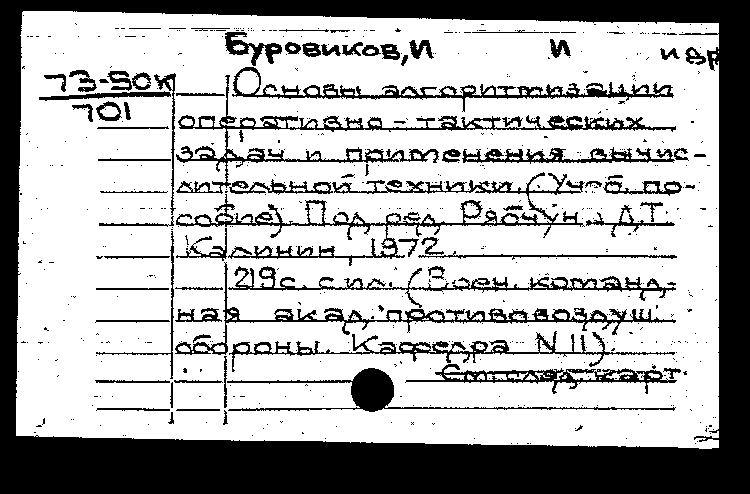 Буровиков, И И и др
73-50к
701
Основы алгоритмизации
оперативно-тактических
задач и применения вычис-
лительной техники. (Учеб. по-
собие). Под ред. Рябчун, Д.Т.
Калинин, 1972.
219с. с ил. (Воен. команд-
ная акад. противовоздуш.
обороны. Кафедра N 11)
См. след. карт.